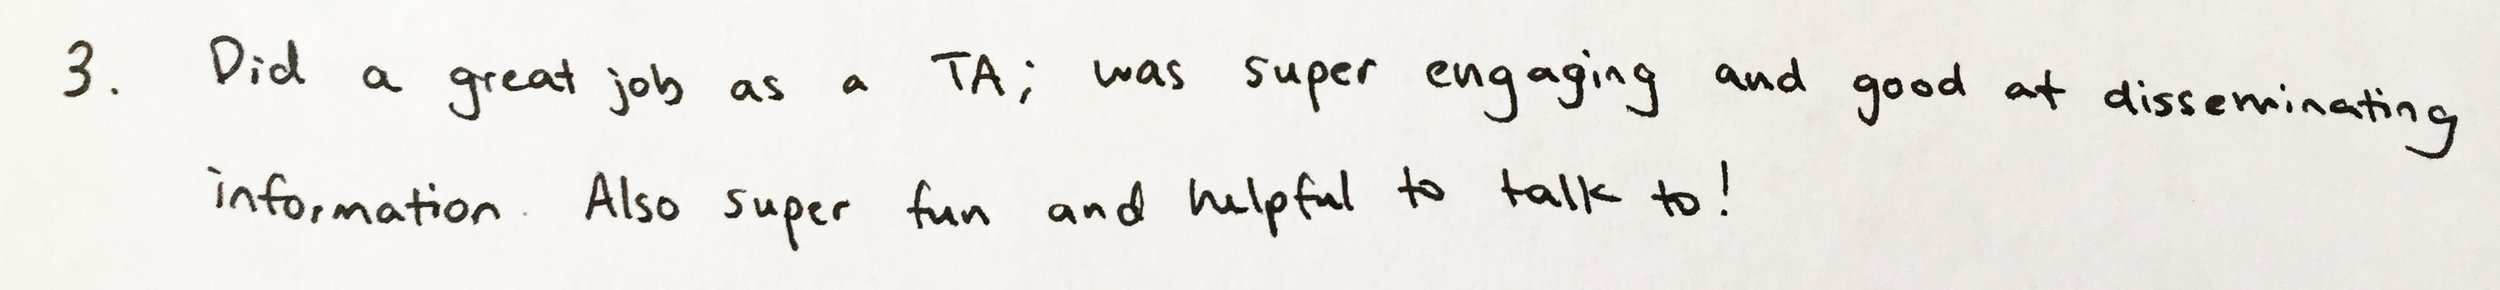 3. Did a great job as a TA; was super engaging and good at disseminating
information. Also super fun and helpful to talk to!